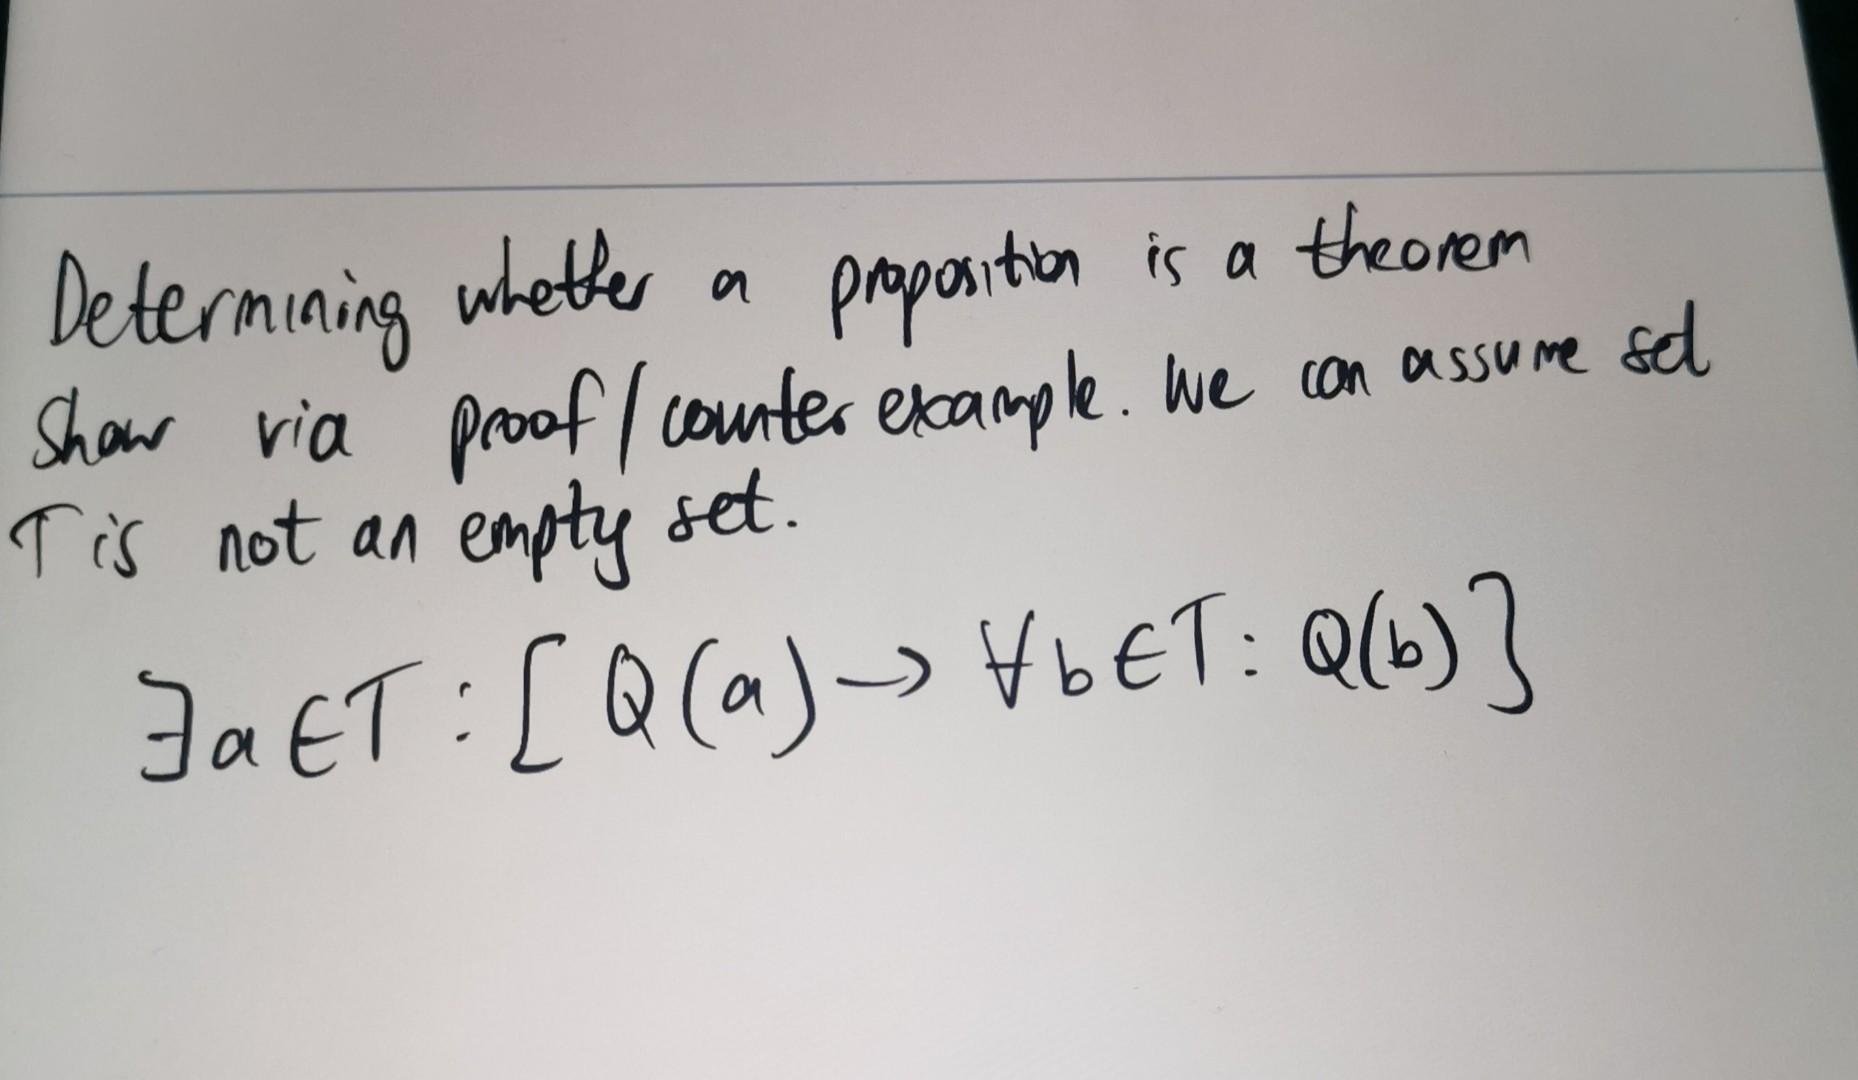 Determining whether a proposition is a theorem
Show via proof/counter example. We can assume set
T is not an empty set.
∃a∈T:[Q(a)→∀b∈T:Q(b)]